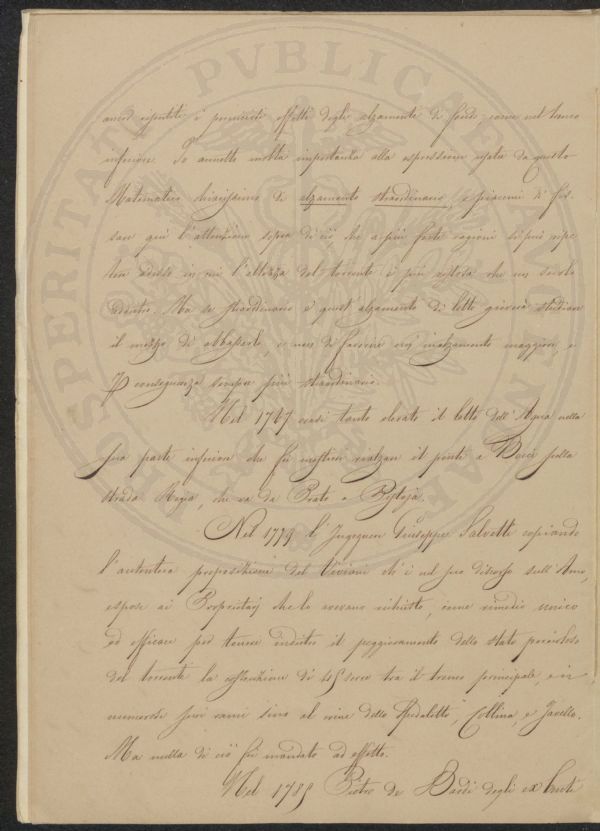 ancor riportati i perniciosi effetti degli alzamenti di fondo come nel tronco
inferiore. Io annetto molta importanza alla espressione usata da questo
Matematico chiarissimo di alzamento straordinario, e piacemi di fis-
sare qui l'attenzione sopra di ciò, che a più forte ragione si può ripe-
tere adesso in cui l'altezza del torrente è più che un secolo
addietro. Ma se straordinario è quest'alzamento di letto gioverà studiare
il mezzo di abbassarlo, e non di farvene un inalzamento maggiore, e
P conseguenza sempre più straordinario.
Nel 1747 era tanto elevato il letto dell'Agna nella
sua parte inferiore che fu mestiere rialzare il ponte a Bocci sulla
strada Regia, che va da Prato a Pistoja.
Nel 1779 l'Ingegnere Giuseppe Salvetti copiando
l'autentica proposizione del Viviani ch'è nel suo discorso sull'Arno,
espose ai Proprietarj che lo avevano richiesto, come rimedio unico
ed efficace per tenere indietro il peggioramento dello stato pericoloso
del torrente la costruzione di 45 serre tra il tronco principale, e in-
numerosi suoi rami sino al rine dello Spedaletto, Collina, e Javello.
Ma nulla di ciò fu mandato ad effetto.
Nel 1785 Pietro de Bardi degli ex Conti